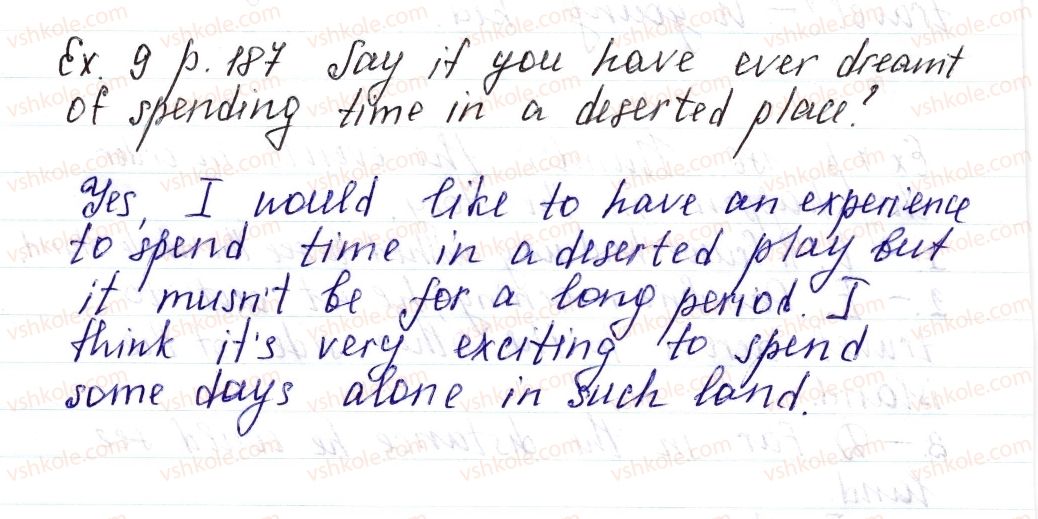 Ex. 9 p. 187 Say if you have ever dreamt
of spending time in a deserted place?
Yes, I would like to have an experience
to spend time in a deserted play but
it musn't be for a long period. I
think it's very exciting to spend
some days alone in such land.